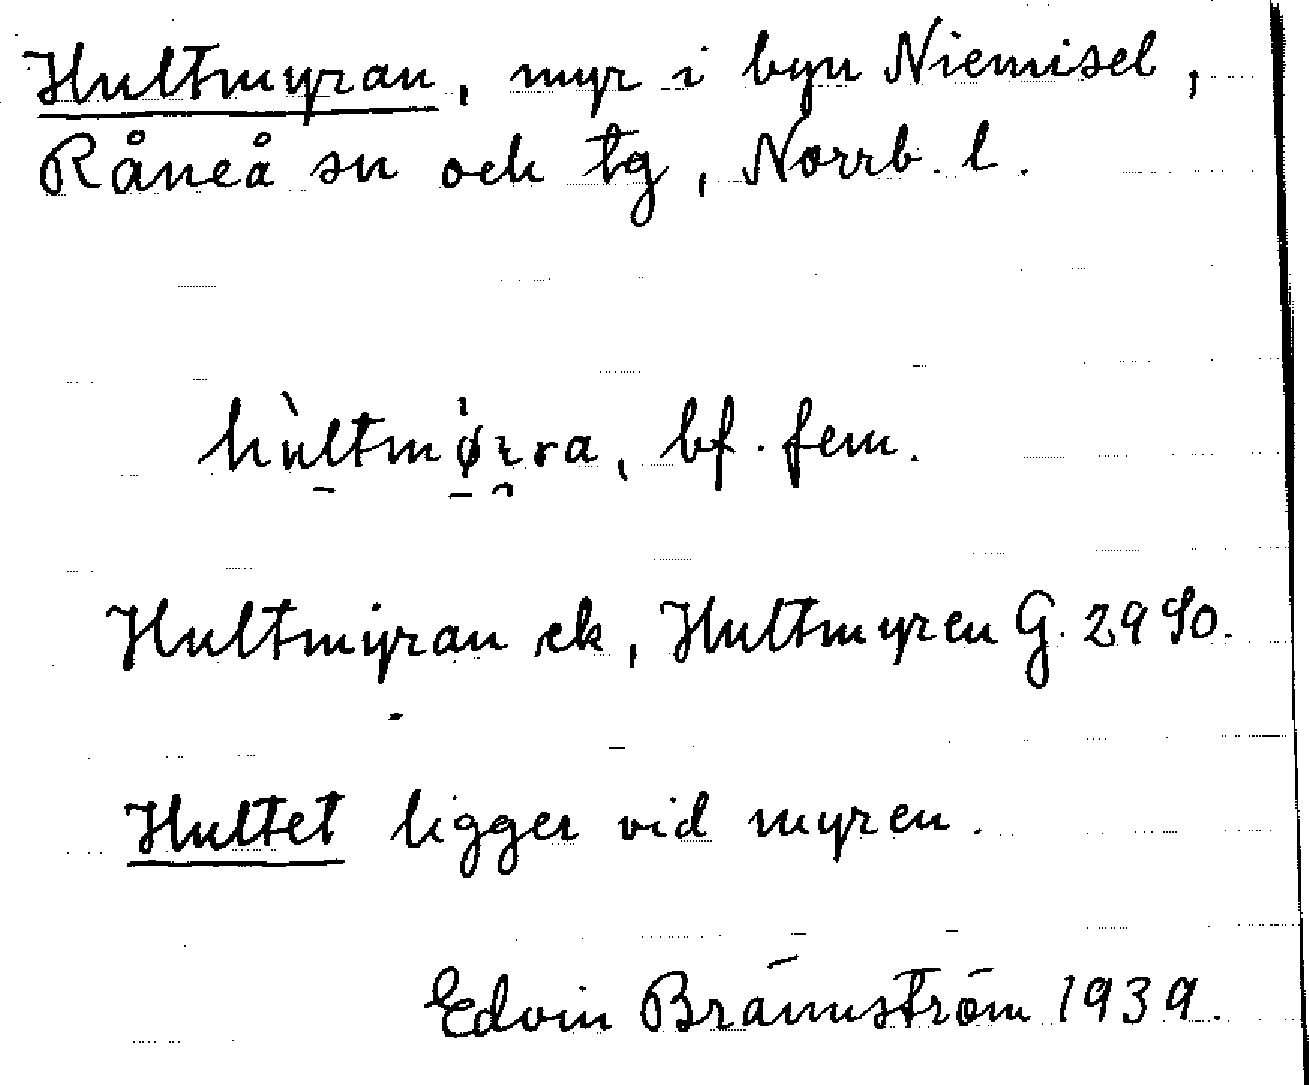 Hultmyran, myr i byn Niemisel,
Råneå sn och tg, Norrb. l.
hùltmø̀rra, bf. fem.
Hultmyran ek, Hultmyren G. 2990.
Hultet ligger vid myren.
Edvin Brännström 1939.